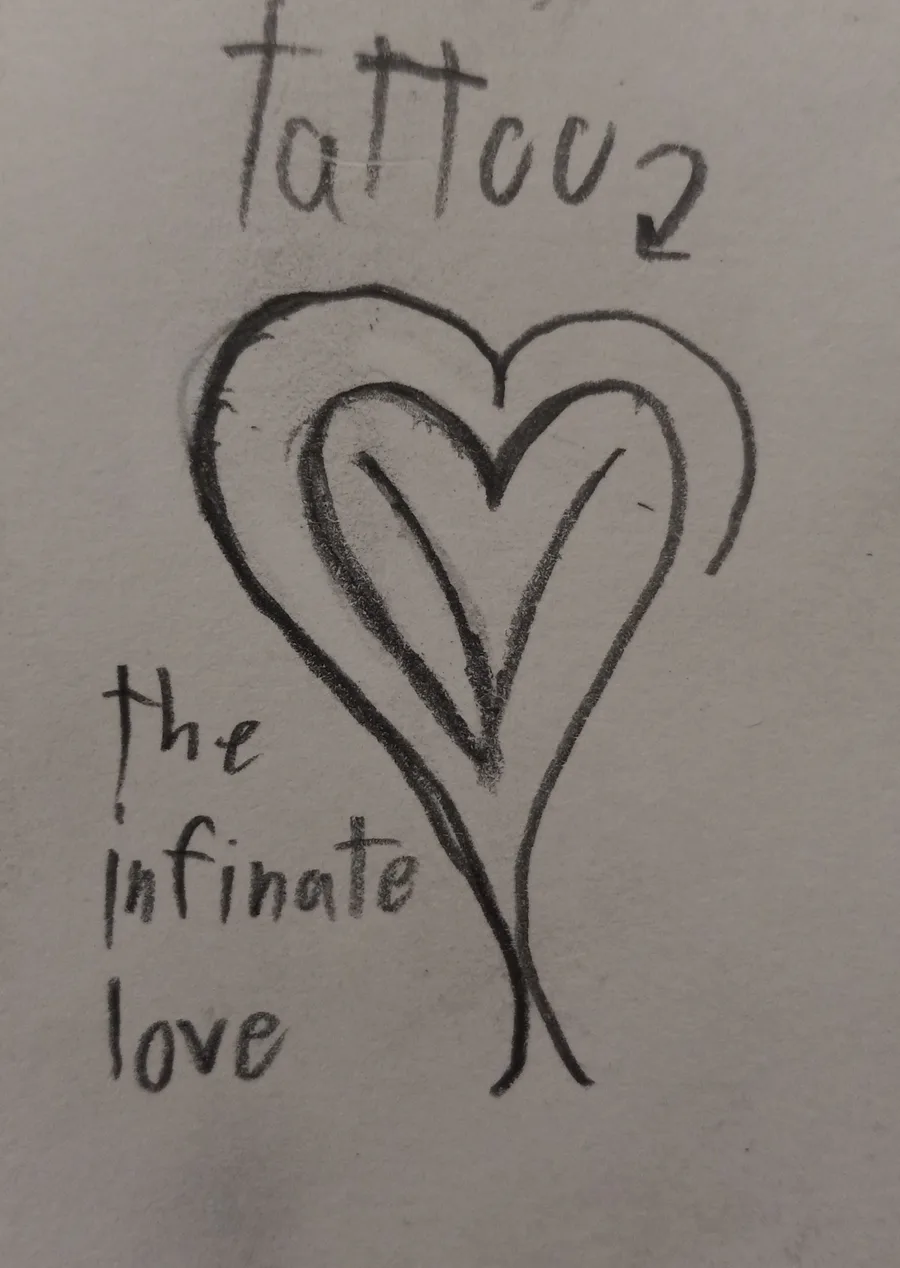 tattoo
the
infinate
love